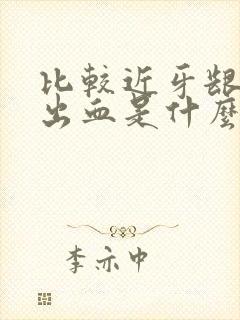 比较近牙龈
出血是什麼
李亦中